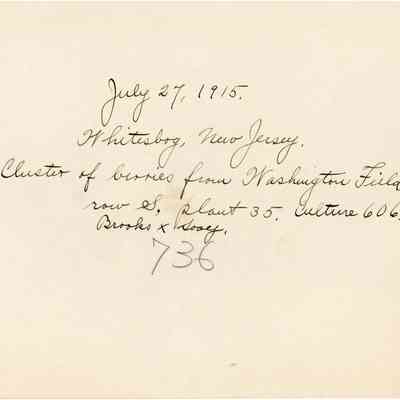 July 27, 1915.
Whitesbog, New Jersey.
Cluster of berries from Washington Field
row S, plant 35. Culture 606.
Brooks x Sooy.
736